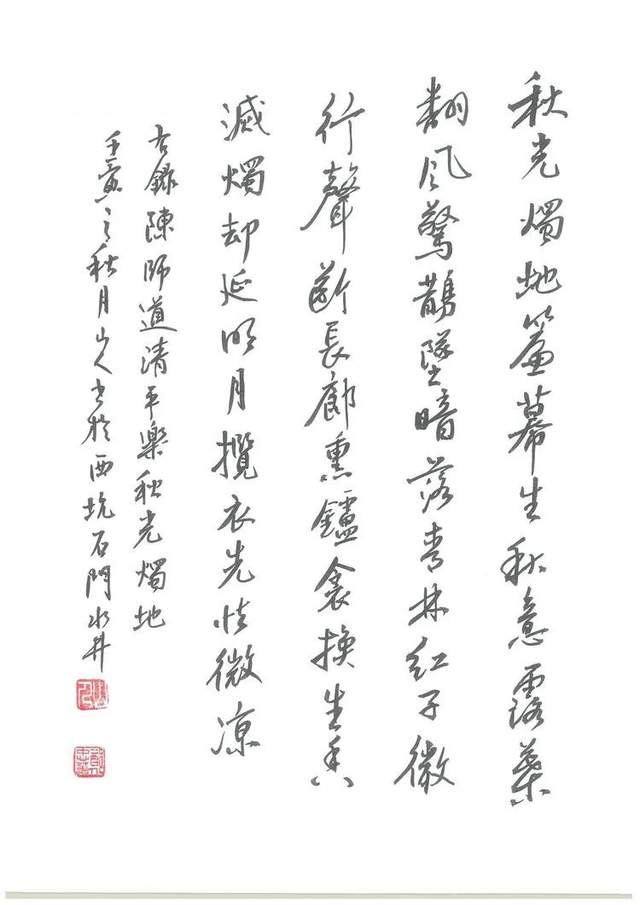 秋光燭地簾幕生秋意露葉
翻風驚鵲墜暗落青林紅子微
行聲斷長廊熏鑪衾換生香
滅燭却延明月攬衣先怯微凉
右錄陳師道清平樂秋光燭地
壬寅之秋月山人書於西坑石門水井